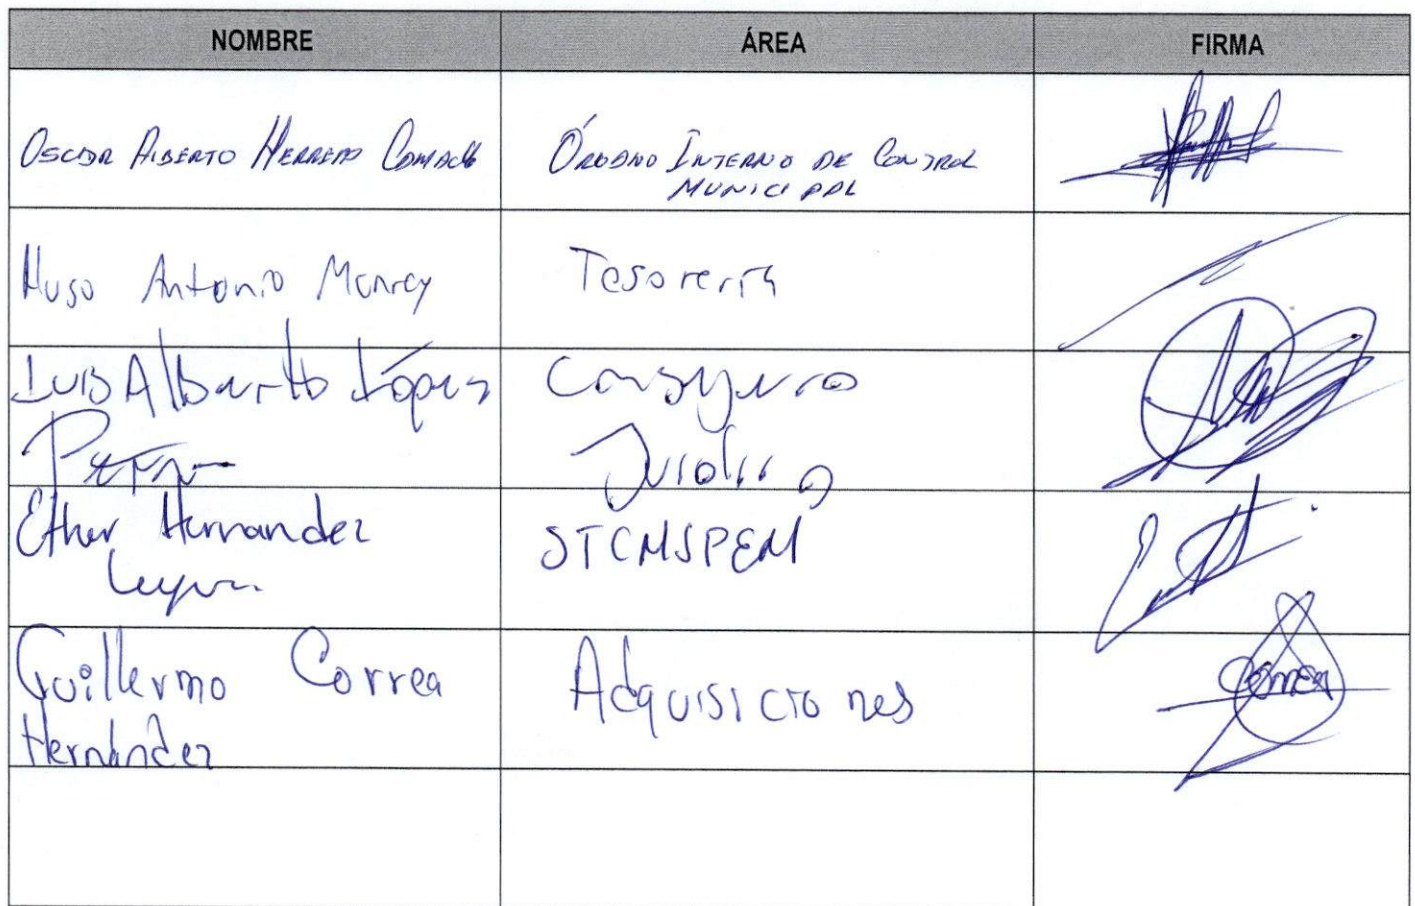 NOMBRE ÁREA FIRMA
OSCAR ALBERTO HERRERA ÓRGANO INTERNO DE CONTROL
MUNICIPAL
Hugo Antonio Monroy Tesorería
Luis Alberto López Consejero
Jurídico
Esther Hernandez STCMSPEM
Guillermo Correa Adquisiciones
Hernández
CORREA